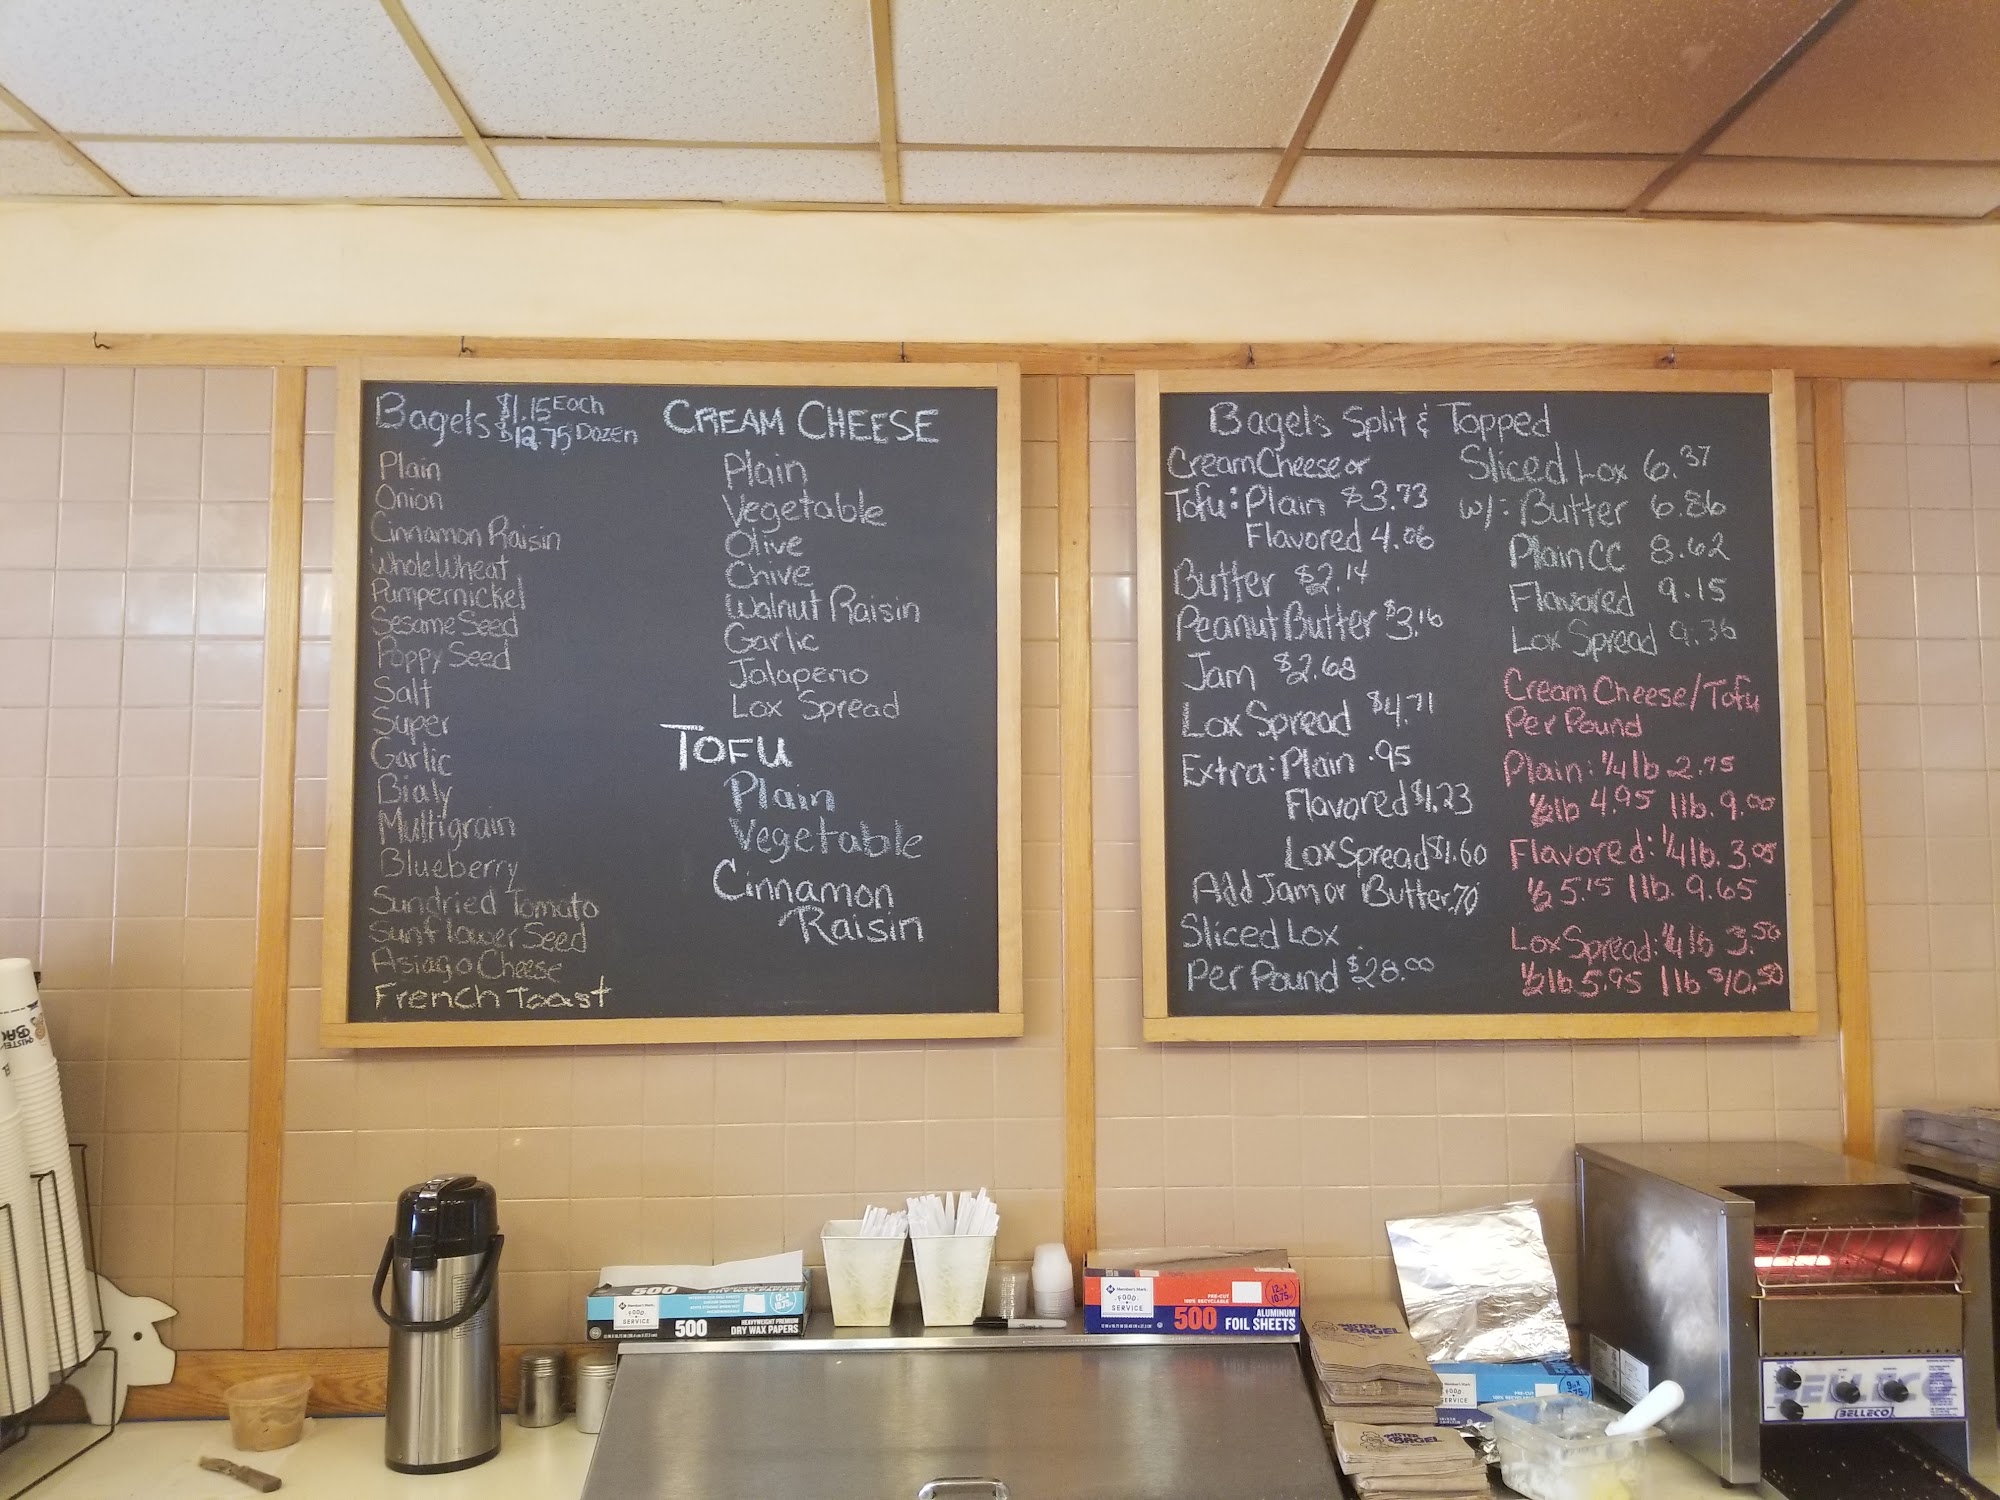 Bagels $1.15 Each
$12.75 Dozen
Plain
Onion
Cinnamon Raisin
Whole Wheat
Pumpernickel
Sesame Seed
Poppy Seed
Salt
Super
Garlic
Bialy
Multigrain
Blueberry
Sundried Tomato
Sunflower Seed
Asiago Cheese
French Toast
CREAM CHEESE
Plain
Vegetable
Olive
Chive
Walnut Raisin
Garlic
Jalapeno
Lox Spread
TOFU
Plain
Vegetable
Cinnamon
Raisin
Bagels Split & Topped
Cream Cheese or
Tofu: Plain $3.73
Flavored 4.06
Butter $2.14
Peanut Butter $3.16
Jam $2.68
Lox Spread $4.71
Extra: Plain .95
Flavored $1.23
Lox Spread $1.60
Add Jam or Butter .70
Sliced Lox
Per Pound $28.00
Sliced Lox 6.37
w/: Butter 6.86
Plain CC 8.62
Flavored 9.15
Lox Spread 9.36
Cream Cheese/Tofu
Per Pound
Plain: 1/4 lb 2.75
1/2 lb 4.95 1 lb. 9.00
Flavored: 1/4 lb. 3.05
1/2 5.15 1 lb. 9.65
Lox Spread: 1/4 lb 3.50
1/2 lb 5.95 1 lb $10.50
500
Member's Mark
FOOD
SERVICE
500
HEAVYWEIGHT PREMIUM
DRY WAX PAPERS
12 x
10.75
Member's Mark
FOOD
SERVICE
PRE-CUT
100% RECYCLABLE
500
ALUMINUM
FOIL SHEETS
12 x
10.75
MISTER
BAGEL
MISTER
BAGEL
FOOD
SERVICE
PRE-CUT
BELLECO
BELLECO